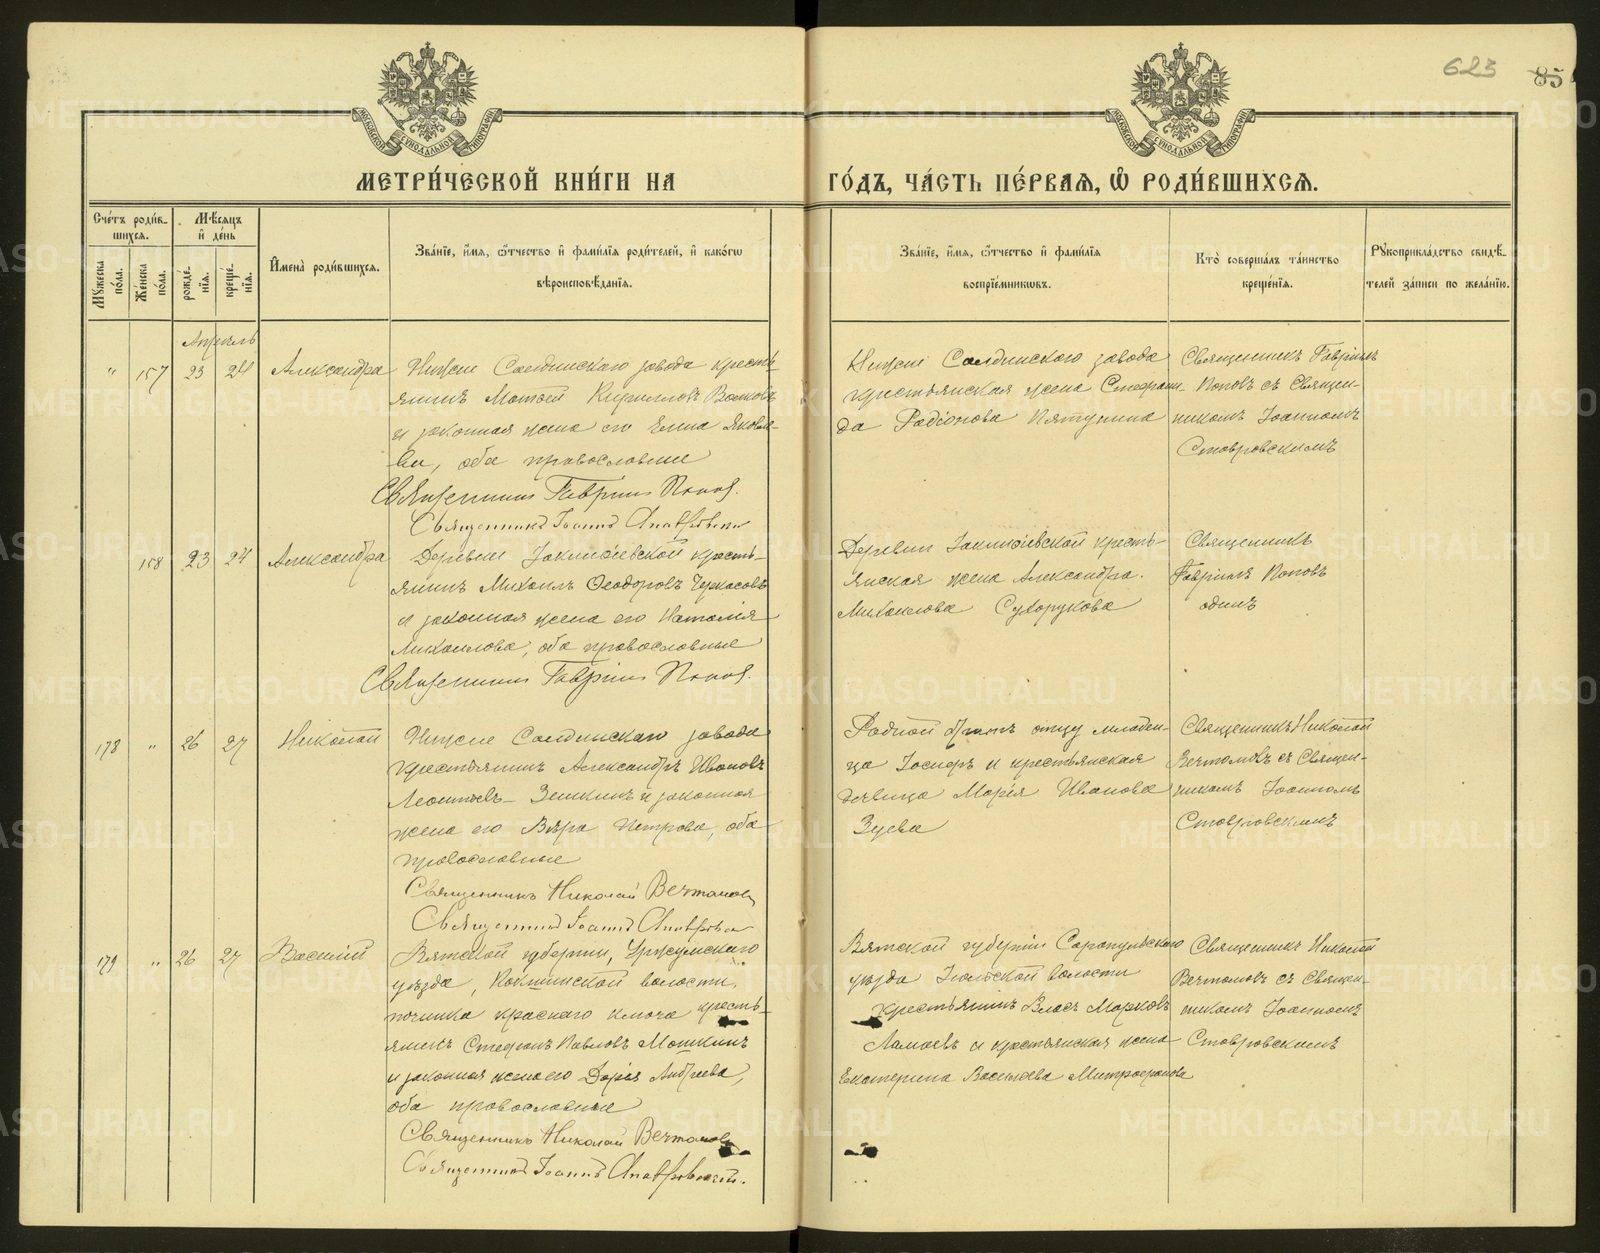 623
85
МОСКОВСКОЙ СѴНОДАЛЬНОЙ ТИПОГРАФІИ
МОСКОВСКОЙ СѴНОДАЛЬНОЙ ТИПОГРАФІИ
МЕТРИ́ЧЕСКОЙ КНИ́ГИ НА
ГО́ДЪ, ЧА́СТЬ ПЕ́РВАѦ, Ѡ҆ РОДИ́ВШИХСѦ.
Сче́тъ роди́в-
шихся.
Мꙋ́жеска по́ла.
Же́нска по́ла.
Мѣ́сяцъ
и҆ де́нь
рожде́-
нїя.
креще́-
нїя.
И҆мена̀ роди́вшихся.
Зва́нїе, и҆́мя, ѻ҆́тчество и҆ фами́лїя роди́телей, и҆ како́гѡ
вѣроисповѣ́данїя.
Зва́нїе, и҆́мя, ѻ҆́тчество и҆ фами́лїя
воспрїе́мникѡвъ.
Кто̀ соверша́лъ та́инство
креще́нїя.
Рꙋкоприкла́дство свидѣ́-
телей за́писи по жела́нїю.
Апрель
" 157 23 24 Александра
Нижне Салдинскаго завода кресть-
янинъ Матвей Кирилловъ Волковъ
и законная жена его Елена Яковле-
ва, оба православные
Священникъ Гавріилъ Попов.
Священникъ Іоаннъ Ставровскій
Нижне Салдинскаго завода
крестьянская жена Степани-
да Родіонова Пятунина
Священникъ Гавріилъ
Поповъ съ Священ-
никомъ Іоанномъ
Ставровскимъ
158 23 24 Александра
Деревни кресть-
янинъ Михаилъ Ѳеодоровъ Черкасовъ
и законная жена его Наталія
Михаилова, оба православные
Священникъ Гавріилъ Попов.
Деревни кресть-
янская жена Александра
Михаилова Сухорукова
Священникъ
Гавріилъ Поповъ
одинъ
178 " 26 27 Николай
Нижне Салдинскаго завода
крестьянинъ Александръ Ивановъ
Леонтьевъ-Зенкинъ и законная
жена его Вѣра Петрова, оба
православные
Священникъ Николай Вечтомовъ
Священникъ Іоаннъ Ставровскій
Родной братъ отцу младен-
ца Іосифъ и крестьянская
девица Марія Иванова
Зуева
Священникъ Николай
Вечтомовъ съ Священ-
никомъ Іоанномъ
Ставровскимъ
179 " 26 27 Василій
Вятской губерніи, Уржумскаго
уѣзда, Кокшинской волости,
починка краснаго ключа кресть-
янинъ Стефанъ Павловъ Мошкинъ
и законная жена его Дарія Андреева,
оба православные
Священникъ Николай Вечтомовъ
Священникъ Іоаннъ Ставровскій.
Вятской губерніи Сарапульскаго
уѣзда волости
крестьянинъ Власъ Марковъ
Ламаевъ и крестьянская жена
Екатерина Васильева Митрофанова
Священникъ Николай
Вечтомовъ съ Священ-
никомъ Іоанномъ
Ставровскимъ
METRIKI.GASO-URAL.RU